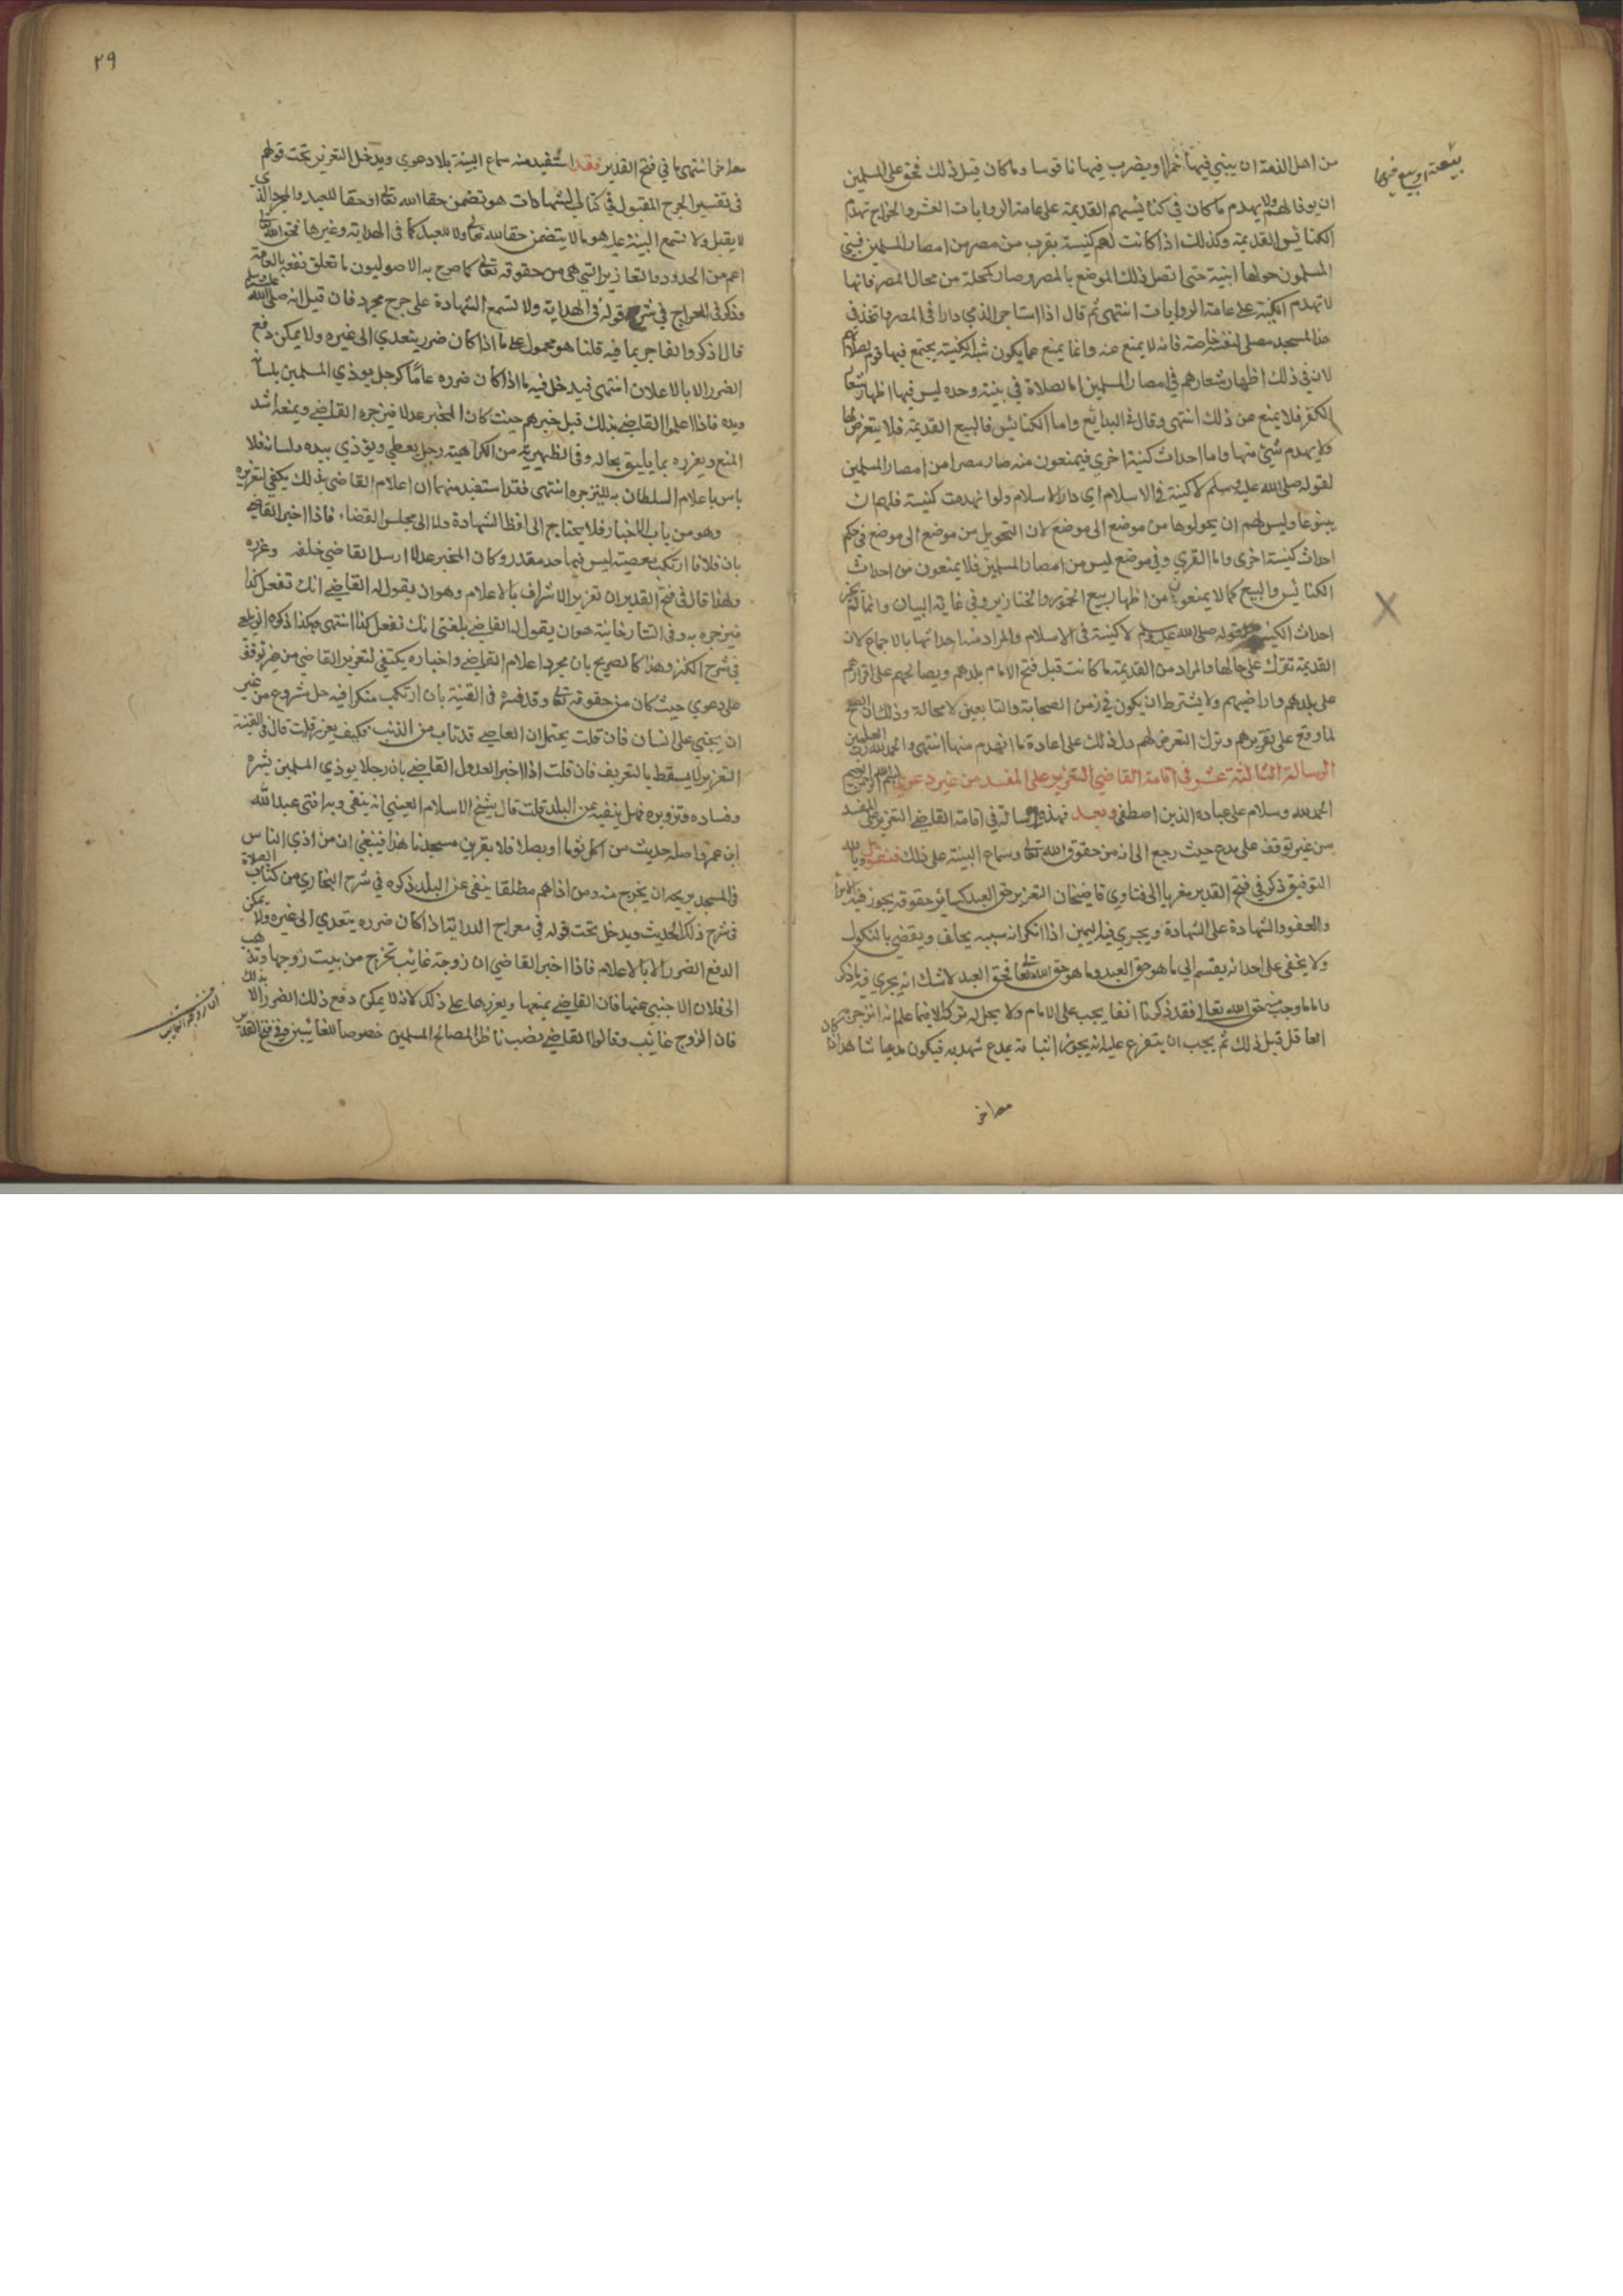 من اهل الذمة ان يبني فيها خمرا او يضرب فيها ناقوسا وما كان قبل ذلك فحق على المسلمين
ان يوفا لهم ولا يهدم ما كان في كنائسهم القديمة على عامة الروايات العشر والخراج تهدم
الكنائس القديمة وكذلك اذا كانت لهم كنيسة بقرب من مصر من امصار المسلمين فيبني
المسلمون حولها ابنية حتى اتصل ذلك الموضع بالمصر وصار كمحلة من محال المصر فانها
لا تهدم الكنيسة على عامة الروايات انتهى ثم قال اذا استاجر الذمي دارا في المصر واتخذ في
هذا المسجد مصلى لنفسه خاصة فانه لا يمنع عنه وانما يمنع عما يكون شبه الكنيسة يجتمع فيها قوم
لان في ذلك اظهار شعارهم في امصار المسلمين اما لصلاة في بيته وحده ليس فيها اظهار شعار
الكفر فلا يمنع من ذلك انتهى وقال في البدائع واما الكنائس فالبيع القديمة فلا يتعرض لها
ولا يهدم شئ منها واما احداث كنيسة اخرى فيمنعون منه صار مصرا من امصار المسلمين
لقوله صلى الله عليه وسلم لا كنيسة في الاسلام اي دار الاسلام ولو انهدمت كنيسة فلهم ان
يبنوها وليس لهم ان يحولوها من موضع الى موضع لان التحويل من موضع الى موضع في حكم
احداث كنيسة اخرى واما القرى وفي موضع ليس من امصار المسلمين فلا يمنعون من احداث
الكنائس والبيع كما لا يمنعون من اظهار بيع الخمور والخنازير وفي غاية البيان وانما لم يجز
احداث الكنيسة لقوله صلى الله عليه وسلم لا كنيسة في الاسلام والمراد منه احداثها بالاجماع لان
القديمة تترك على حالها والمراد من القديمة ما كانت قبل فتح الامام بلدهم ويصالحهم على اقرارهم
على بلدهم واراضيهم ولا يشترط ان يكون في زمن الصحابة والتابعين لا محالة وذلك ان الصلح
لما وقع على تقريرهم وترك التعرض لهم دل ذلك على اعادة ما انهدم منها انتهى والحمد لله رب العلمين
الرسالة الثالثة عشر في اقامة القاضي التعزير على المفسد من غير دعوى بسم الله الرحمن الرحيم
الحمد لله وسلام على عباده الذين اصطفى وبعد فهذه رسالة في اقامة القاضي التعزير على المفسد
من غير توقف على مدع حيث رجع الى انه من حقوق الله تعالى وسماع البينة على ذلك فنقول وبالله
التوفيق ذكر في فتح القدير مغريا الى فتاوى قاضيخان التعزير حق العبد كسائر حقوقه يجوز فيه الابراء
والعفو والشهادة على الشهادة ويجري فيه اليمين اذا انكر انه سببه يحلف ويقضى بالنكول
ولا يخفى على احد انه ينقسم الى ما هو حق العبد وما هو حق الله تعالى فحق العبد لا شك انه يجري فيه ما ذكر
واما ما وجب منه حق الله تعالى فقد ذكرنا انفا يجب على الامام ولا يحل له تركه الا فيما علم انه انزجر
الفاعل قبل ذلك ثم يجب ان يتفرع عليه انه يجوز اثباته بمدع شهد به فيكون مدعيا شاهدا اذا كان
معه اخر
معه اخر انتهى ما في فتح القدير فقد استفيد منه سماع البينة بلا دعوى ويدخل التعزير تحت قولهم
في تفسير الجرح المقبول في كتاب الشهادات هو تضمن حقا لله تعالى او حقا للعبد والجرح الذي
لا يقبل ولا تسمع البينة عليه هو ما لا يتضمن حقا لله تعالى ولا للعبد كما في الهداية وغيرها فحق الله تعالى
اعم من الحدود والتعازير التي هي من حقوقه تعالى كما صرح به الاصوليون ما تعلق نفعه بالعامة
وذكر في المعراج في شرح قوله في الهداية ولا تسمع الشهادة على جرح مجرد فان قيل انه صلى الله عليه وسلم
قال اذكروا الفاجر بما فيه قلنا هو محمول على ما اذا كان ضرر يتعدى الى غيره ولا يمكن دفع
الضرر الا بالاعلان انتهى فيدخل فيه ما اذا كان ضرره عاما كرجل يوذي المسلمين بلسانه
ويده فاذا اعلموا القاضي بذلك قبل خبرهم حيث كان المخبر عدلا فيزجره القاضي ويمنعه اشد
المنع ويعزره بما يليق بحاله وفي الظهيرية من الكراهية رجل يصلي ويؤذي بيده ولسانه فلا
باس باعلام السلطان به لينزجره انتهى فقد استفيد منهما ان اعلام القاضي بذلك يكفي لتعزيره
وهو من باب الاخبار فلا يحتاج الى لفظ الشهادة ولا الى مجلس القضاء فاذا اخبر القاضي
بان فلانا ارتكب معصية ليس فيها حد مقدر وكان المخبر عدلا ارسل القاضي خلفه وعزره
ولهذا قال في فتح القدير ان تعزير الاشراف بالاعلام وهو ان يقول له القاضي انك تفعل كذا
فينزجره به وفي التتارخانية هو ان يقول له القاضي بلغني انك تفعل كذا انتهى وهكذا ذكره الزيلعي
في شرح الكنز وهذا كالصريح بان مجرد اعلام القاضي واخباره يكتفي لتعزير القاضي من غير توقف
على دعوى حيث كان من حقوقه تعالى وقد فسره في القنية بان ارتكب منكرا فيه حل شروع من غير
ان يجني على انسان فان قلت يحتمل ان العاصي قد تاب من الذنب فكيف يعزر قلت قال في القنية
التعزير لا يسقط بالتعريف فان قلت اذا اخبر العدول القاضي بان رجلا يوذي المسلمين بشره
وفساده وتزويره فهل ينفيه من البلد قلت قال شيخ الاسلام العيني انه ينفى وبه افتى عبد الله
ابن عمر واصله حديث من اكل ثوما او بصلا فلا يقربن مسجدنا هذا فينبغي ان من اذى الناس
في المسجد يريحه ان يخرج منه ومن اذاهم مطلقا ينفى عن البلد ذكره في شرح البخاري من كتاب الصلاة
في شرح ذلك الحديث ويدخل تحت قوله في معراج الدراية اذا كان ضرره يتعدى الى غيره ولا يمكن
الدفع الضرر الا بالاعلام فاذا اخبر القاضي ان زوجة غائب تخرج من بيت زوجها وتذهب
الى فلان الاجنبي عنها فان القاضي يمنعها ويعزرها على ذلك لانه لا يمكن دفع ذلك الضرر الا بذلك
فان الزوج غائب وقالوا القاضي نصب ناظرا لمصالح المسلمين خصوصا للغائبين وفي فتح القدير
٢٩